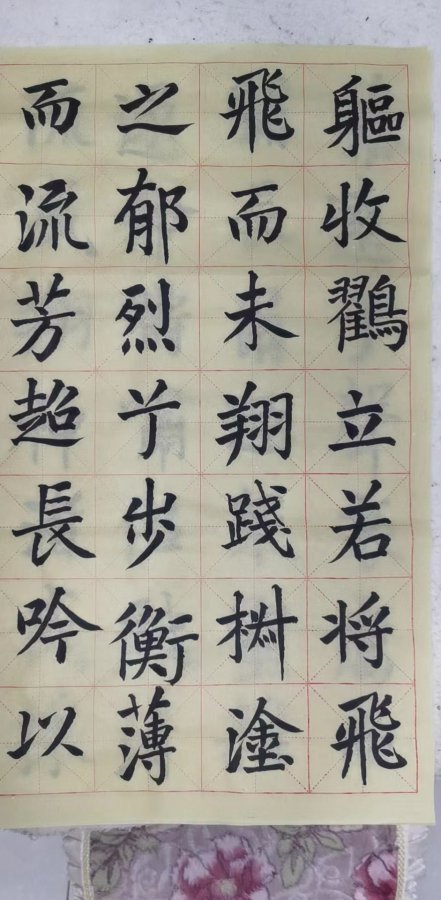 軀收鸐立若将飛
飛而未翔踐椒塗
之郁烈亍步衡薄
而流芳超長吟以